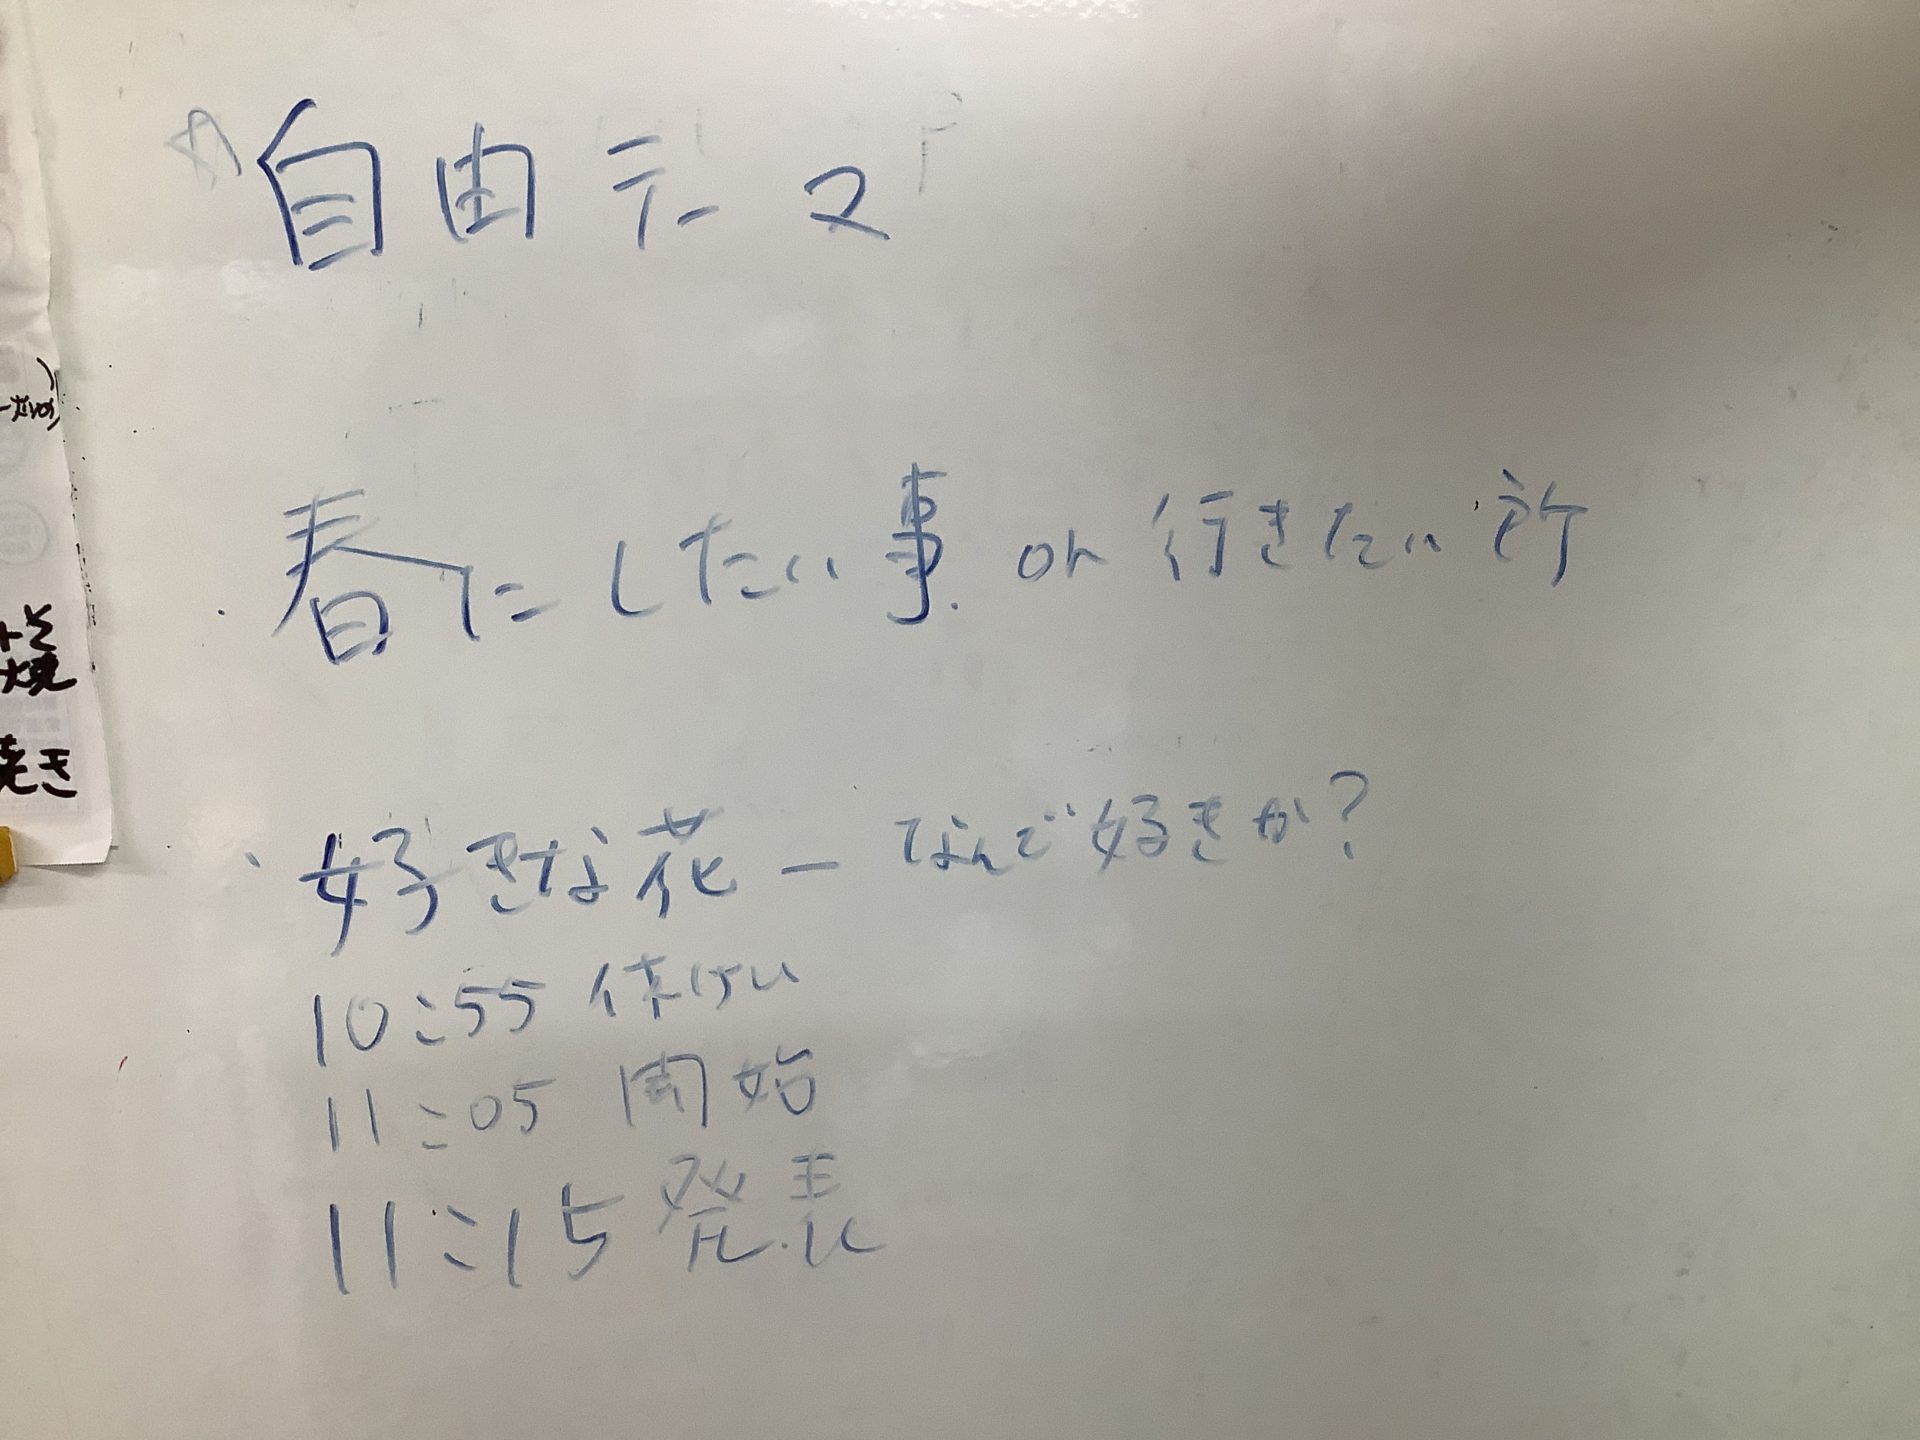 自由テーマ
・春にしたい事 or 行きたい所
・好きな花ー なんで好きか？
10:55 休けい
11:05 開始
11:15 発表
焼
焼き